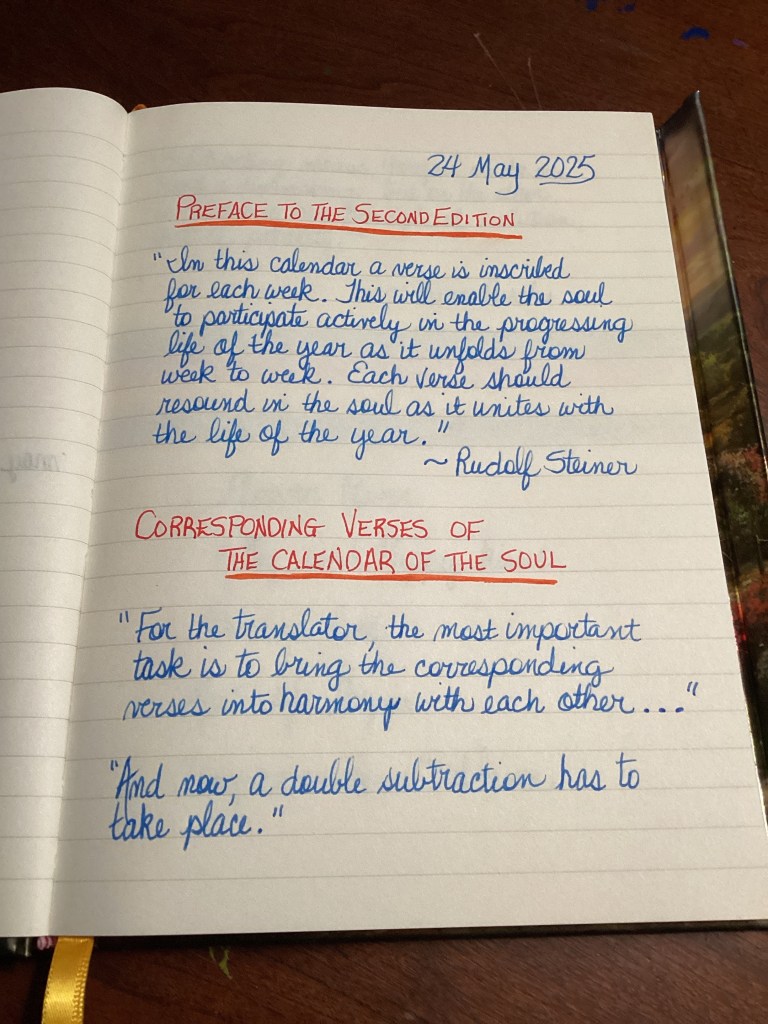 24 May 2025
PREFACE TO THE SECOND EDITION
"In this calendar a verse is inscribed
for each week. This will enable the soul
to participate actively in the progressing
life of the year as it unfolds from
week to week. Each verse should
resound in the soul as it unites with
the life of the year."
~ Rudolf Steiner
CORRESPONDING VERSES OF
THE CALENDAR OF THE SOUL
"For the translator, the most important
task is to bring the corresponding
verses into harmony with each other..."
"And now, a double subtraction has to
take place."